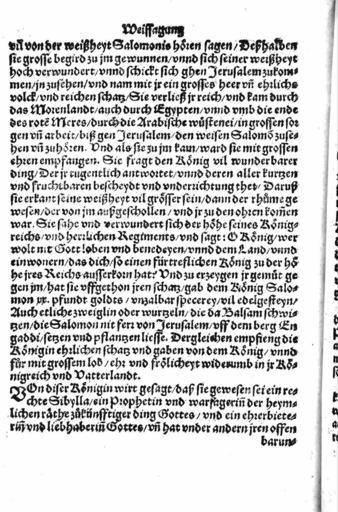 Weissagung
vil von der weißheyt Salomonis hören sagen/ Deßhalben
sie grosse begird zu jm gewunnen/ vnnd sich seiner weißheyt
hoch verwundert/ vnnd schickt sich ghen Jerusalem zukom-
men/ jn zusehen/ vnd nam mit jr ein grosses heer vñ ehrlichs
volck/ vnd reichen schatz/ Sie verließ jr reich/ vnd kam durch
das Morenlandt/ auch durch Egypten/ vnnd vmb die ende
des rote Meres/ durch die Arabische wüstenei/ in grossen sor
gen vñ arbeit/ biß gen Jerusalem/ den weisen Salomõ zuse-
hen vñ zuhören. Vnd als sie zu jm kam/ ward sie mit grossen
ehren empfangen. Sie fragt den König vil wunderbarer
ding/ Der jr tugentlich antwortet/ vnnd deren aller kurtzen
vnd fruchtbaren bescheydt vnd vnderrichtung thet/ Daruß
sie erkant seine weißheyt vil grösser sein/ dann der rhüme ge
wesen/ der von jm außgeschollen/ vnd jr zu den ohren kom̃en
war. Sie sahe vnd verwundert sich der höhe seines König-
reichs/ vnd herrlichen Regiments/ vnd sagt: O König/ wer
wolt nit Gott loben vnd benedeyen/ vnnd dem Land/ vnnd
einwonern/ das dich/ so einen fürtreflichen König zu der hö
he jres Reichs ausserkorn hat? Vnd zu erzeygen jr gemüt ge
gen jm/ hat sie vffgethon jren schatz/ gab dem König Salo-
mon xx. pfundt goldts/ vnzalbar specerey/ vil edelgesteyn/
Auch etliche zweiglin oder wurtzeln/ die da Balsam schwi-
tzen/ die Salomon nit ferr von Jerusalem/ vff dem berg En
gaddi/ setzen vnd pflantzen liesse. Dergleichen empfieng die
Königin ehrlichen schatz vnd gaben von dem König/ vnnd
für mit grossem lob/ ehr vnd frölicheyt widerumb in jr Kö-
nigreich vnd Vatterlandt.
VOn diser Königin wirt gesagt/ daß sie gewesen sei ein re-
chte Sibylla/ ein Prophetin vnd warsagerin der heym-
lichen räthe zukünfftiger ding Gottes/ vnd ein ehrerbiete-
rin vnd liebhaberin Gottes/ vñ hat vnder andern jren offen
barun-